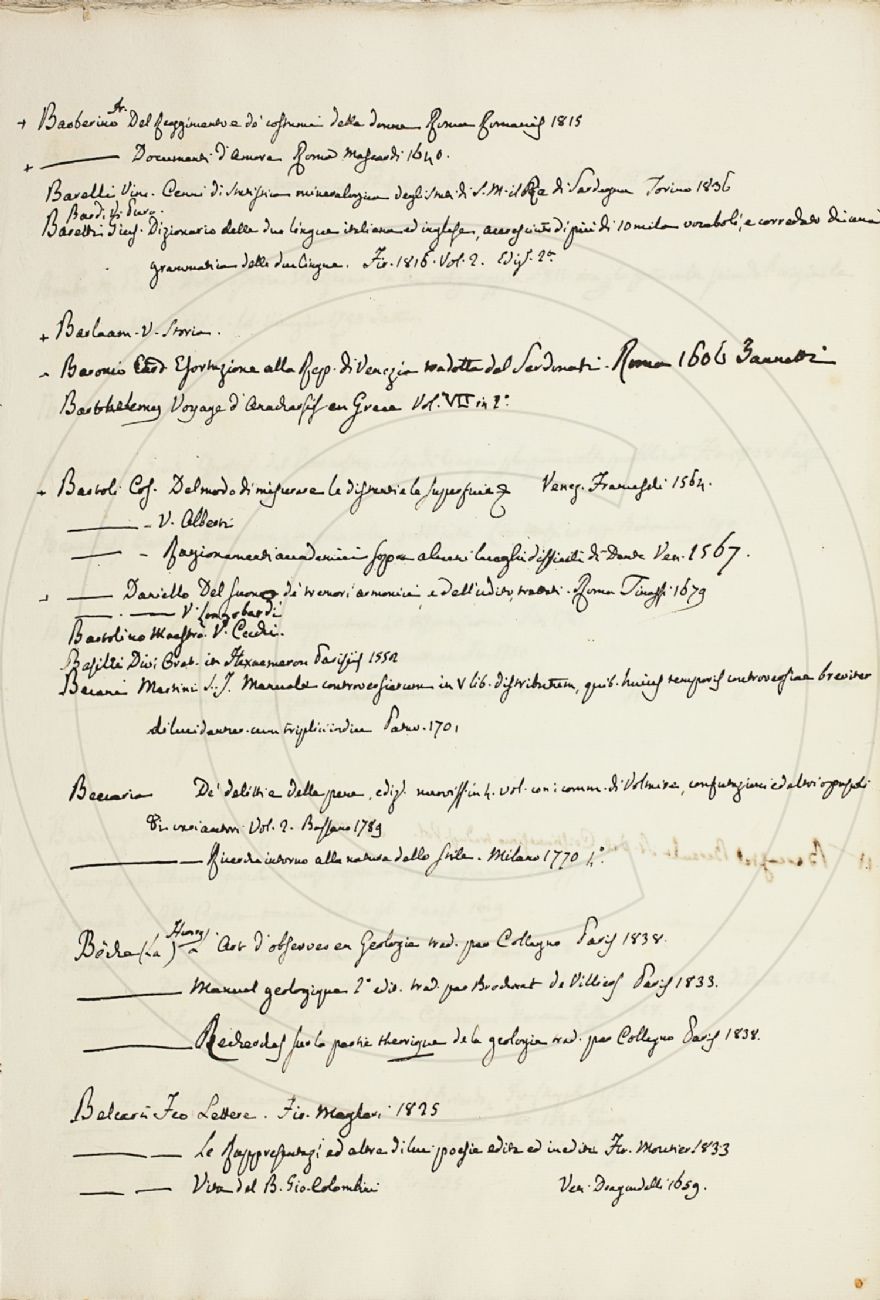 + Barberino Fr. Del Reggimento e de' costumi della donna Roma Romanis 1815
+ —— Documenti d'Amore Roma Mascardi 1640.
Barelli Vinc. Cenni di statistica mineralogica degli stati di S. M. il Re di Sardegna Torino 1836
Bardi
Baretti Gius. Dizionario delle due lingue italiana ed inglese, accresciuto di più di 10 mila vocaboli, e corredato di una
grammatica delle due lingue. Fir. 1816. Vol. 2. Ediz. 2a
+ Barlaam. V. Storia.
- Baronio Card Esortazione alla Rep. di Venezia tradotta dal Serdonati. Roma 1606 Zannetti
Barthelemy Voyage d'Anacharsis en Grece Vol. VII in 2°
+ Bartoli Cos. Del modo di misurare le distantie le superficie Venez. Franceschi 1564.
—— - V. Alberti
—— - Ragionamenti accademici sopra alcuni luoghi difficili di Dante Ven. 1567.
—— Daniello Del suono de' tremori armonici e dell'udito, trattati. Roma Tinassi 1679
—— —— V. Longobardi
Bartolino Maestro. V. Cecchi.
Basilii Divi Orat. in Hexaemeron Parisiis 1552
Becani Martini S. J. Manuale controversiarum in V lib. distributum, quib. huius temporis controversiae breviter
dilucidantur cum triplici indice Patav. 1701
Beccaria De' delitti e delle pene, ediz. nuoviss. in 4. vol. con i comm. di Voltaire, confutazioni ed altri opuscoli
di vari autori Vol. 2. Bassano 1789
—— Ricerche intorno alla natura dello stile. Milano 1770 4°.
Bèche (La) Henry. Art d'observer en Geologie trad. par Collegno Paris 1838.
—— Manuel geologique 2a edit. trad. par Brochant de Villiers Paris 1833.
—— Recherches sur la partie theorique de la geologie trad. par Collegno Paris 1838.
Belcari Feo Lettere. Fir. Magheri 1825
—— — Le Rappresentazi ed altre di lui poesie edite ed inedite Fir. Moutier 1833
—— — Vita del B. Gio. Colombini Ven. Dragondelli 1659.